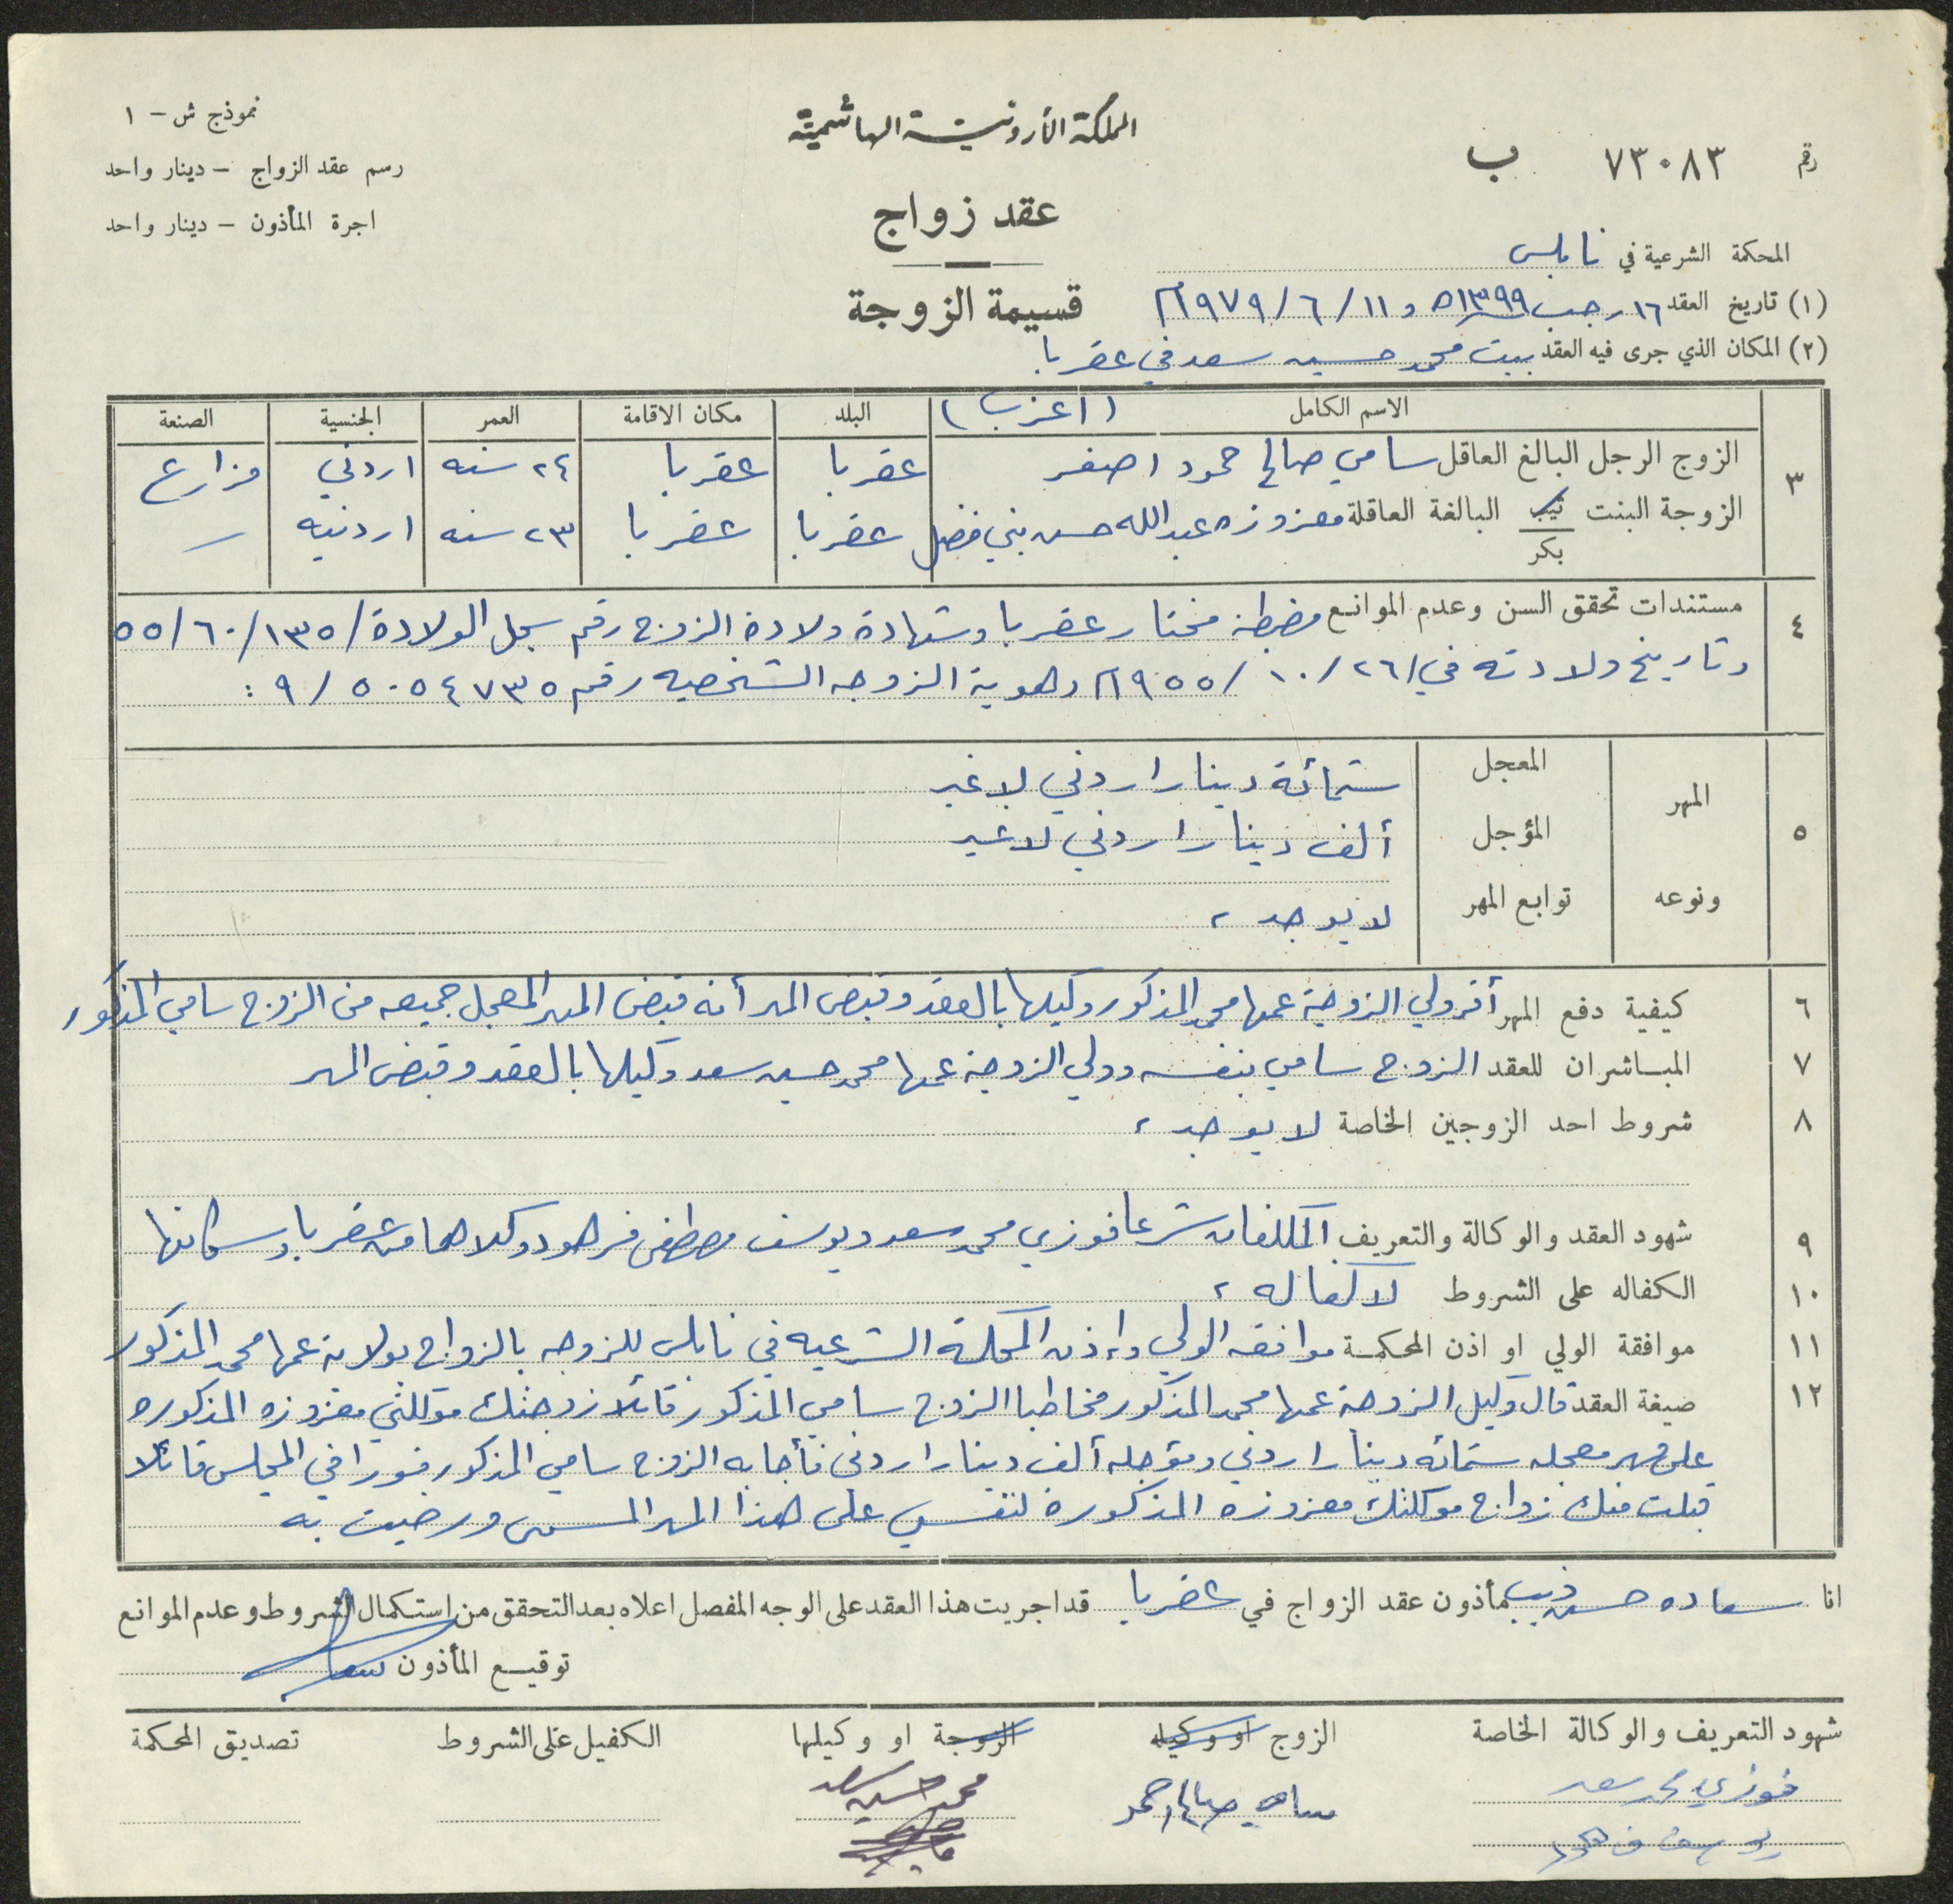 نموذج ش - ١
رسم عقد الزواج - دينار واحد
اجرة المأذون - دينار واحد
المملكة الأردنية الهاشمية
عقد زواج
قسيمة الزوجة
رقم ٧٣٠٨٣ ب
المحكمة الشرعية في نابلس
(١) تاريخ العقد ١٦ رجب ١٣٩٩ھ و ١١/٦/١٩٧٩م
(٢) المكان الذي جرى فيه العقد بيت محمد حسين سعد في عقربا
الاسم الكامل (اعزب) البلد مكان الاقامة العمر الجنسية الصنعة
٣
الزوج الرجل البالغ العاقل سامي صالح حمود اصفر عقربا عقربا ٢٤ سنه اردني مزارع
الزوجة البنت ثيب البالغة العاقلة معزوزه عبدالله حسن بني فضل عقربا عقربا ٢٣ سنه اردنيه
بكر
٤ مستندات تحقق السن وعدم الموانع مضبطة مختار عقربا وشهادة ولادة الزوج رقم سجل الولادة / ١٣٥/٦٠/٥٥
وتاريخ ولادته في ٢٦/١٠/١٩٥٥م وهوية الزوجه الشخصيه رقم ٥٠٥٤٧٣٥/٩ :
٥ المهر ونوعه
المعجل ستمائة دينار اردني لا غير
المؤجل ألف دينار اردني لا غير
توابع المهر لا يوجد ،
٦ كيفية دفع المهر أقر ولي الزوجة عمها محمد المذكور وكيلها بالعقد وقبض المهر أنه قبض المهر المعجل جميعه من الزوج سامي المذكور
٧ المباشران للعقد الزوج سامي بنفسه وولي الزوجة عمها محمد حسين سعد وكيلها بالعقد وقبض المهر
٨ شروط احد الزوجين الخاصة لا يوجد ،
٩ شهود العقد والوكالة والتعريف المكلفان شرعا فوزي محمد سعد ويوسف مصطفى فرهود وكلاهما من عقربا وسكانها
١٠ الكفاله على الشروط لا كفاله ،
١١ موافقة الولي او اذن المحكمة موافقه الولي واذن المحكمة الشرعيه في نابلس للزوجه بالزواج بولاية عمها محمد المذكور
١٢ صيغة العقد قال وكيل الزوجة عمها محمد المذكور مخاطبا الزوج سامي المذكور قائلا زوجتك موكلتي معزوزه المذكوره
على مهر معجله ستمائه دينار اردني ومؤجله ألف دينار اردني فأجابه الزوج سامي المذكور فورا في المجلس قائلا
قبلت منك زواج موكلتك معزوزه المذكورة لنفسي على هذا المهر المسمى ورضيت به
انا سعاده حسن ذيب مأذون عقد الزواج في عقربا قد اجريت هذا العقد على الوجه المفصل اعلاه بعد التحقق من استكمال الشروط وعدم الموانع
توقيع المأذون
شهود التعريف والوكالة الخاصة الزوج او وكيله الزوجة او وكيلها الكفيل على الشروط تصديق المحكمة
فوزي محمد سعد سامي صالح حمد محمد حسين سعد
يوسف